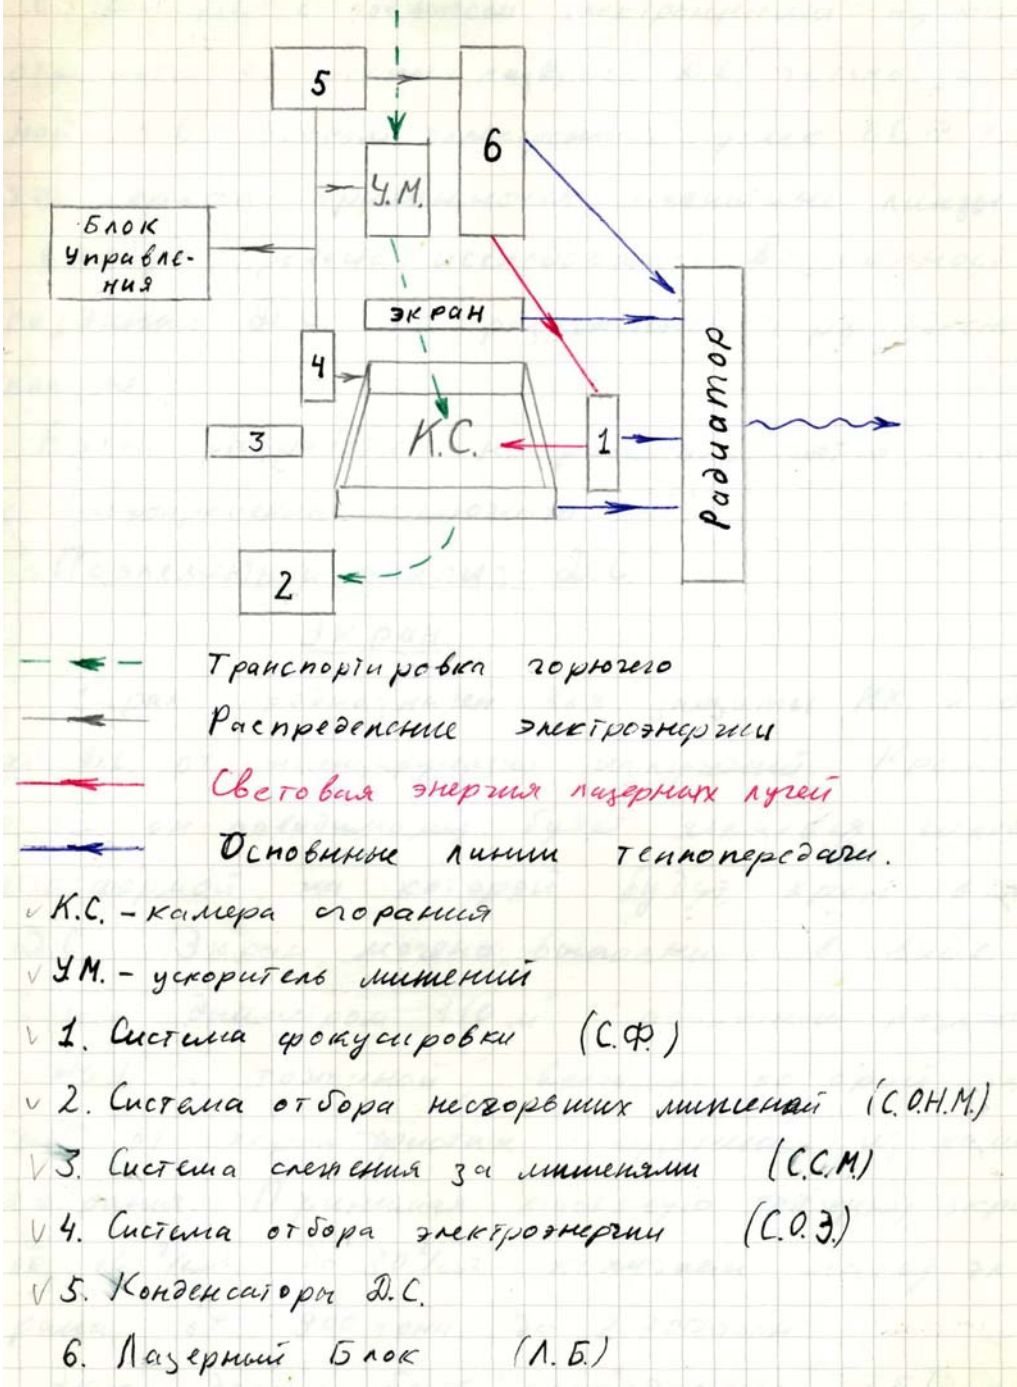 5
6
У.М.
Блок
Управле-
ния
экран
4
К.С.
3
1
Радиатор
2
Транспортировка горючего
Распределение электроэнергии
Световая энергия лазерных лучей
Основные линии теплопередачи.
К.С. - камера сгорания
У.М. - ускоритель мишений
1. Система фокусировки (С.Ф.)
2. Система отбора несгоревших мишеней (С.О.Н.М.)
3. Система слежения за мишенями (С.С.М.)
4. Система отбора электроэнергии (С.О.Э.)
5. Конденсаторы Д.С.
6. Лазерный Блок (Л.Б.)